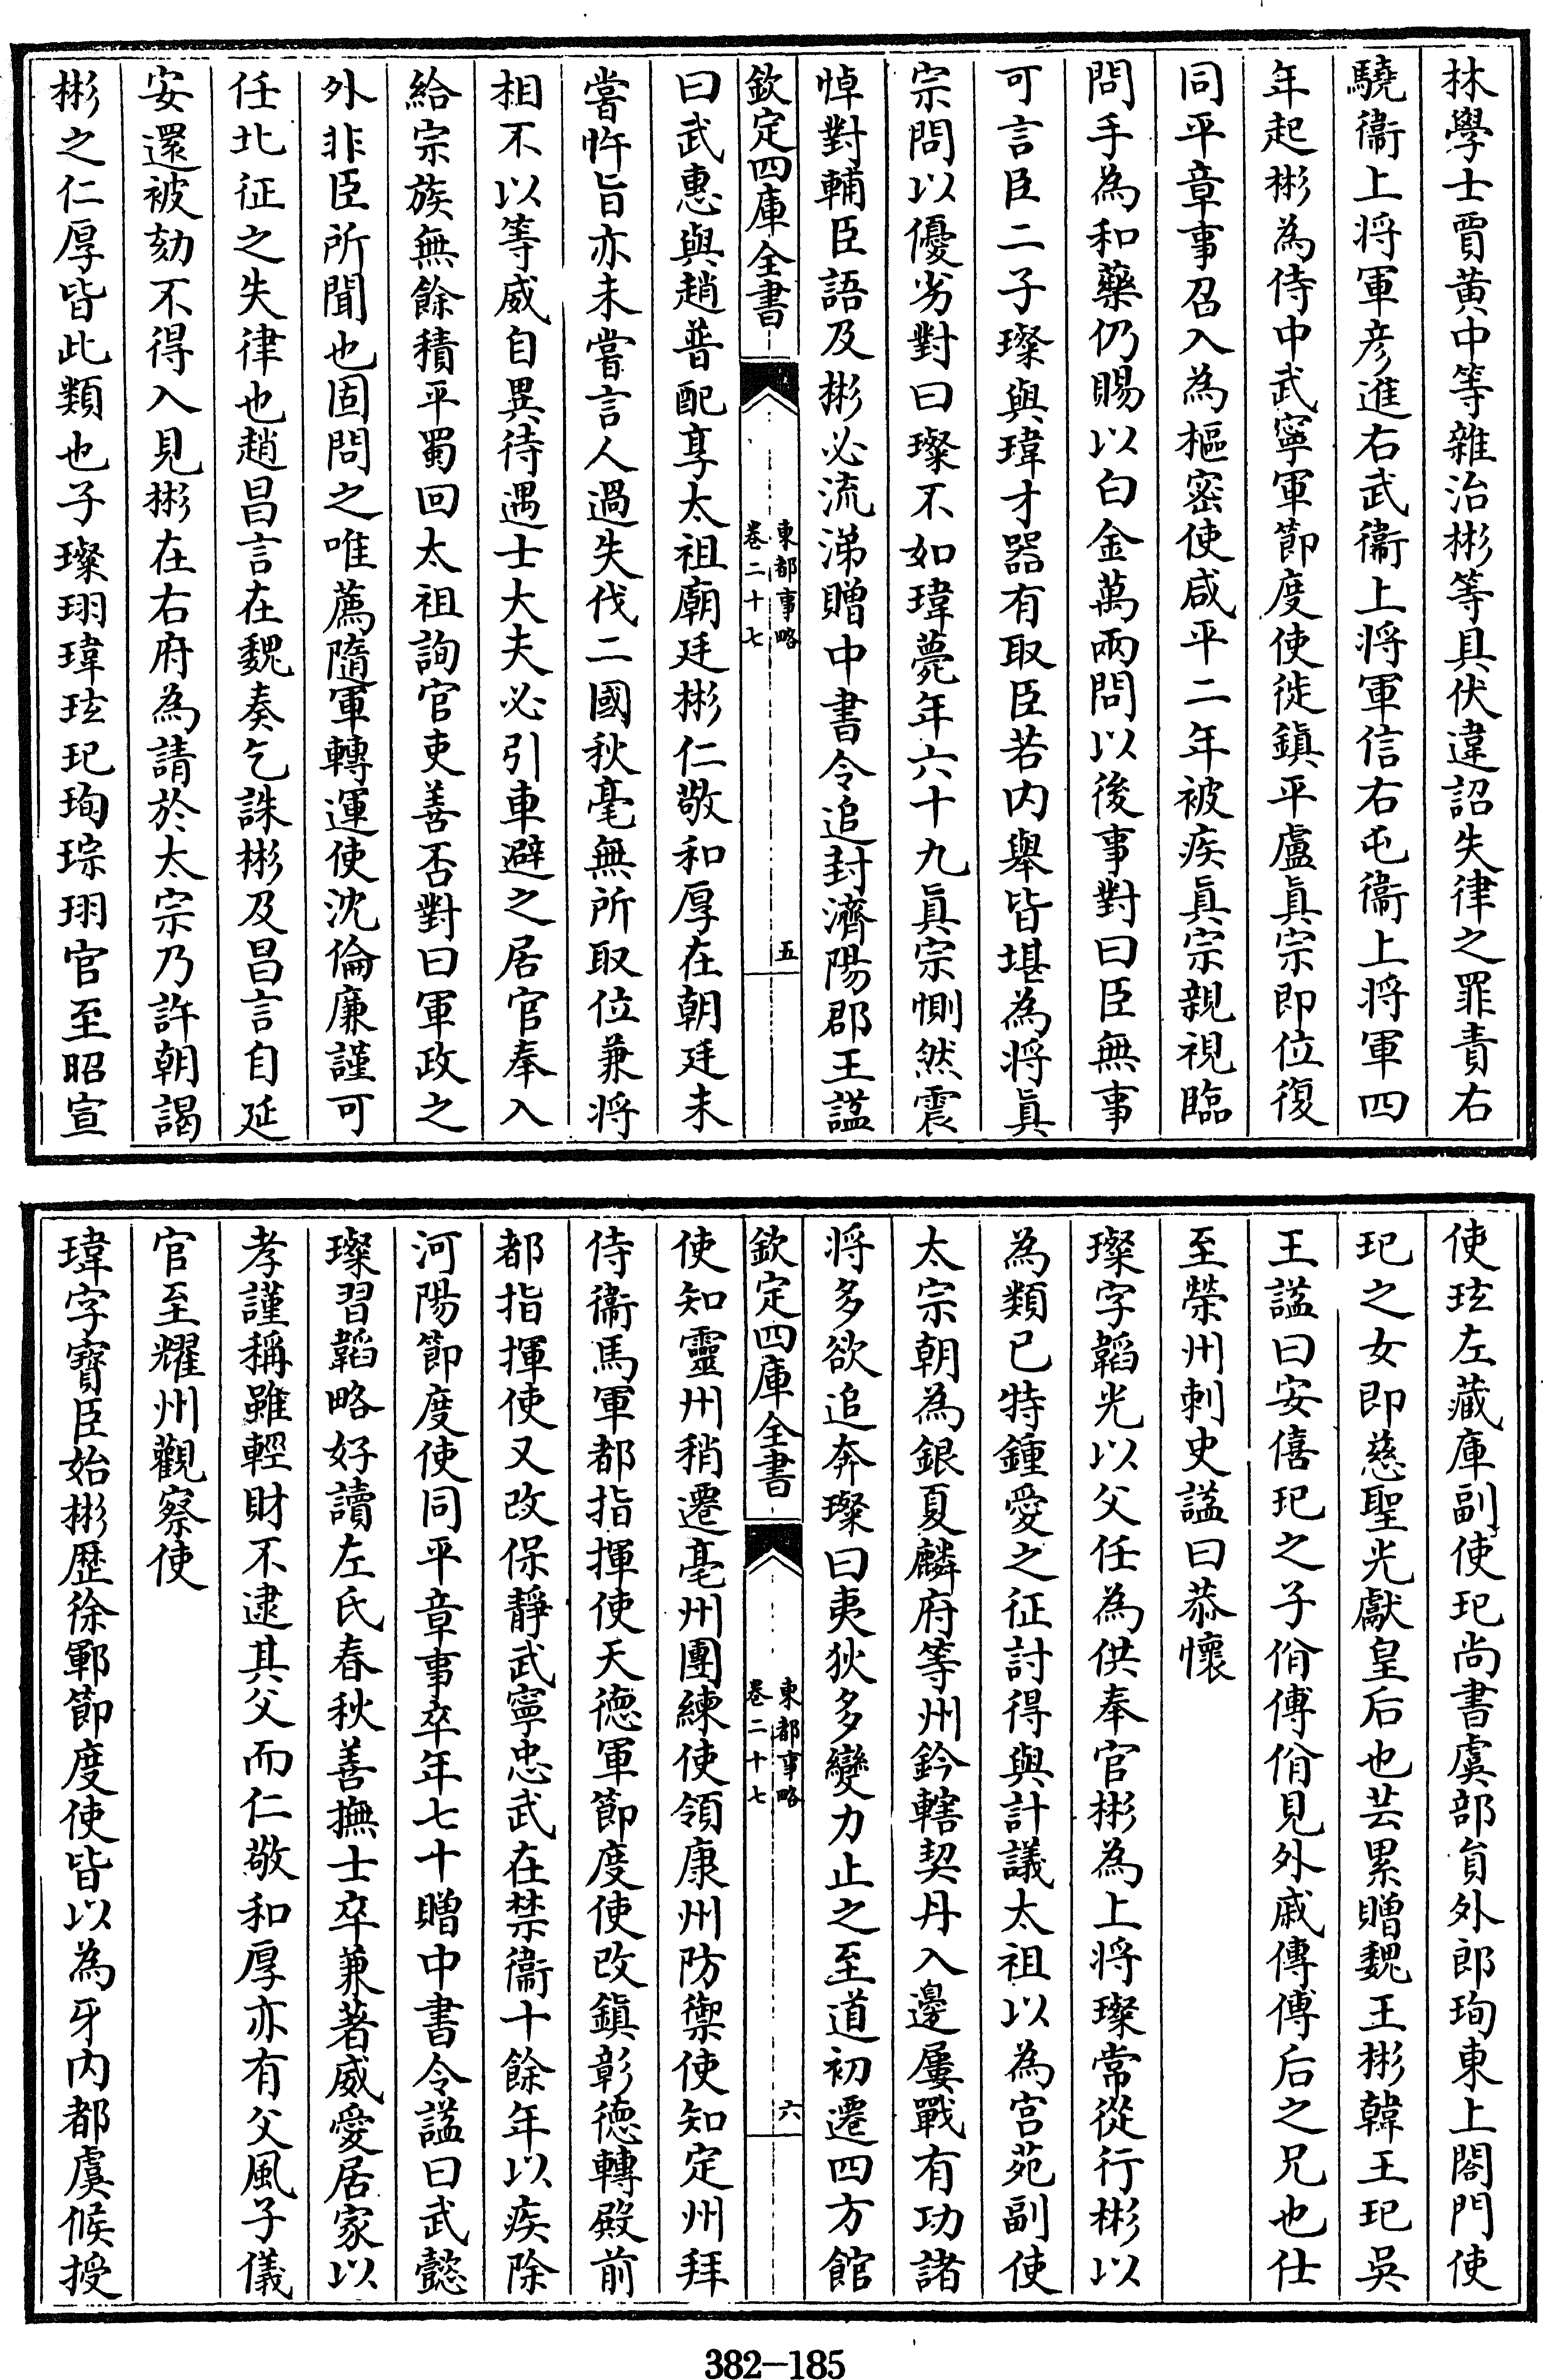 林學士賈黄中等雜治彬等具伏違詔失律之罪責右
驍衞上將軍彦進右武衞上將軍信右屯衞上將軍四
年起彬為侍中武寧軍節度使徙鎮平盧眞宗即位復
同平章事召入為樞密使咸平二年被疾眞宗親視臨
問手為和藥仍賜以白金萬兩問以後事對曰臣無事
可言臣二子璨與瑋才器有取臣若内舉皆堪為將眞
宗問以優劣對曰璨不如瑋薨年六十九眞宗惻然震
悼對輔臣語及彬必流涕贈中書令追封濟陽郡王諡
欽定四庫全書
東都事略
卷二十七
五
曰武惠與趙普配享太祖廟廷彬仁敬和厚在朝廷未
嘗忤旨亦未嘗言人過失伐二國秋毫無所取位兼將
相不以等威自異待遇士大夫必引車避之居官奉入
給宗族無餘積平蜀回太祖詢官吏善否對曰軍政之
外非臣所聞也固問之唯薦隨軍轉運使沈倫廉謹可
任北征之失律也趙昌言在魏奏乞誅彬及昌言自延
安還被劾不得入見彬在右府為請於太宗乃許朝謁
彬之仁厚皆此類也子璨珝瑋玹玘珣琮珝官至昭宣
使玹左藏庫副使玘尚書虞部貟外郎珣東上閤門使
玘之女即慈聖光獻皇后也芸累贈魏王彬韓王玘吳
王諡曰安僖玘之子佾傅佾見外戚傳傅后之兄也仕
至榮州刺史諡曰恭懷
璨字韜光以父任為供奉官彬為上將璨常從行彬以
為類已特鍾愛之征討得與計議太祖以為宫苑副使
太宗朝為銀夏麟府等州鈐轄契丹入邊屢戰有功諸
將多欲追奔璨曰夷狄多變力止之至道初遷四方館
欽定四庫全書
東都事略
卷二十七
六
使知靈州稍遷亳州團練使領康州防禦使知定州拜
侍衞馬軍都指揮使天德軍節度使改鎮彰德轉殿前
都指揮使又改保靜武寧忠武在禁衞十餘年以疾除
河陽節度使同平章事卒年七十贈中書令諡曰武懿
璨習韜略好讀左氏春秋善撫士卒兼著威愛居家以
孝謹稱雖輕財不逮其父而仁敬和厚亦有父風子儀
官至耀州觀察使
瑋字寶臣始彬歴徐鄆節度使皆以為牙内都虞候授
382—185